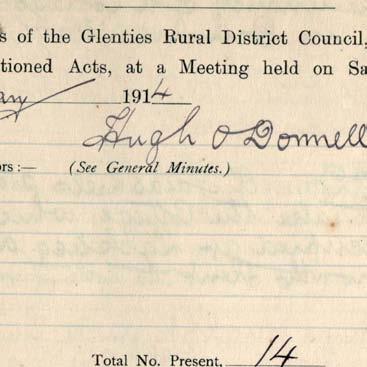 s of the Glenties Rural District Council,
tioned Acts, at a Meeting held on Sa
ary 1914
Hugh O'Donnell
ors:— (See General Minutes.)
Total No. Present, 14